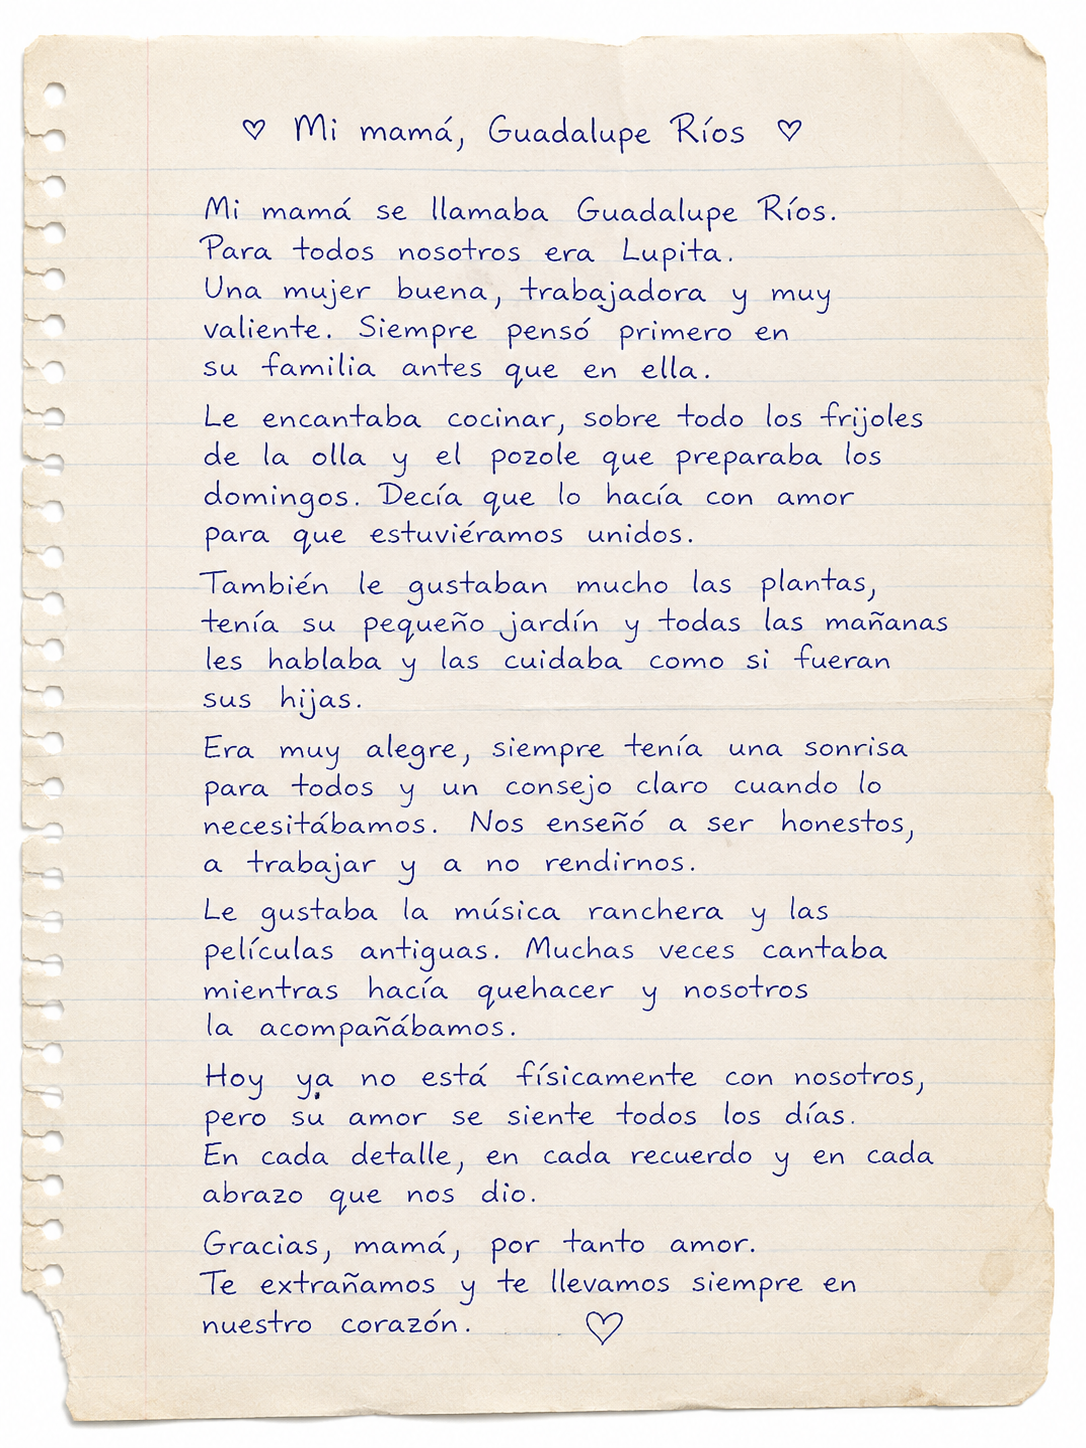 ♡ Mi mamá, Guadalupe Ríos ♡
Mi mamá se llamaba Guadalupe Ríos.
Para todos nosotros era Lupita.
Una mujer buena, trabajadora y muy
valiente. Siempre pensó primero en
su familia antes que en ella.
Le encantaba cocinar, sobre todo los frijoles
de la olla y el pozole que preparaba los
domingos. Decía que lo hacía con amor
para que estuviéramos unidos.
También le gustaban mucho las plantas,
tenía su pequeño jardín y todas las mañanas
les hablaba y las cuidaba como si fueran
sus hijas.
Era muy alegre, siempre tenía una sonrisa
para todos y un consejo claro cuando lo
necesitábamos. Nos enseñó a ser honestos,
a trabajar y a no rendirnos.
Le gustaba la música ranchera y las
películas antiguas. Muchas veces cantaba
mientras hacía quehacer y nosotros
la acompañábamos.
Hoy ya no está físicamente con nosotros,
pero su amor se siente todos los días.
En cada detalle, en cada recuerdo y en cada
abrazo que nos dio.
Gracias, mamá, por tanto amor.
Te extrañamos y te llevamos siempre en
nuestro corazón. ♡